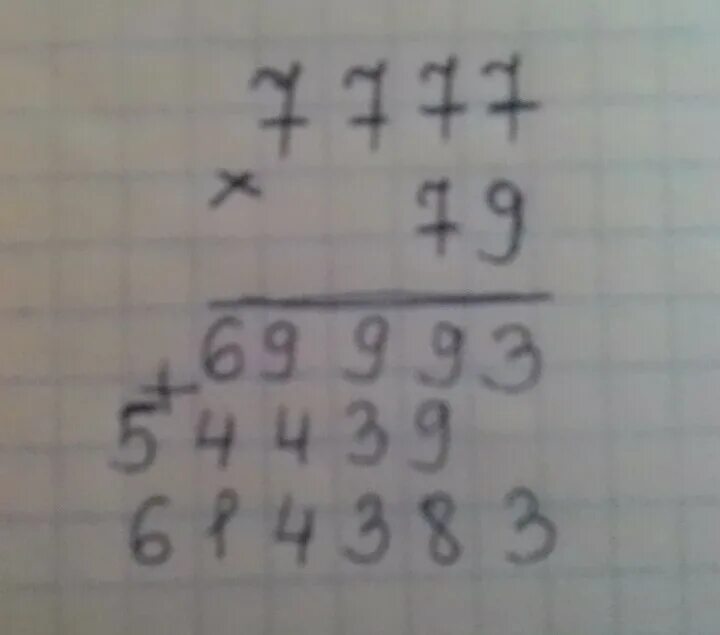 7777
×
79
69993
+
54439
614383